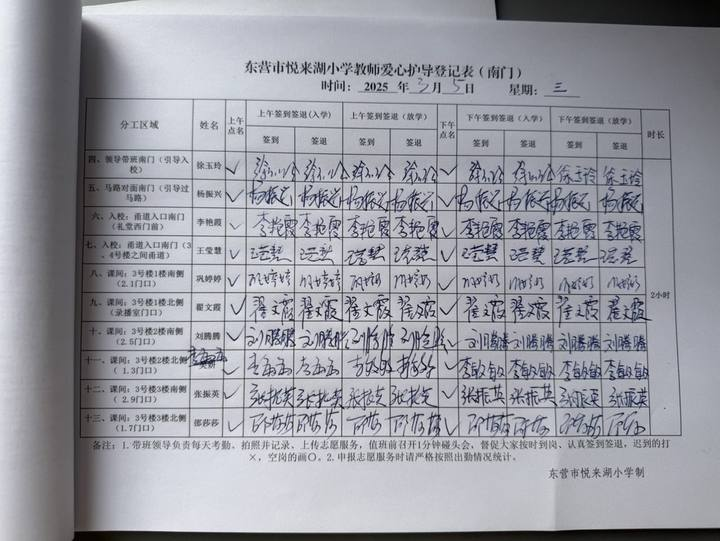 东营市悦来湖小学教师爱心护导登记表（南门）
时间：2025 年 3 月 5 日 星期：三
分工区域 姓名 上午点名 上午签到签退(入学) 上午签到签退（放学） 下午点名 下午签到签退（入学） 下午签到签退（放学） 时长
签到 签退 签到 签退 签到 签退 签到 签退
四、领导带班南门（引导入校） 徐玉玲 ✓ 徐玉玲 徐玉玲 徐玉玲 徐玉玲 ✓ 徐玉玲 徐玉玲 徐玉玲 徐玉玲
五、马路对面南门（引导过马路） 杨振兴 ✓ 杨振兴 杨振兴 杨振兴 杨振兴 ✓ 杨振兴 杨振兴 杨振兴 杨振兴
六、入校：甬道入口南门（礼堂西门前） 李艳霞 ✓ 李艳霞 李艳霞 李艳霞 李艳霞 ✓ 李艳霞 李艳霞 李艳霞 李艳霞
七、入校：甬道入口南门（3、4号楼之间甬道） 王莹慧 ✓ ✓
八、课间：3号楼1楼南侧（2.1门口） 巩婷婷 ✓ ✓
九、课间：3号楼1楼北侧（录播室门口） 翟文霞 ✓ 翟文霞 翟文霞 翟文霞 翟文霞 ✓ 翟文霞 翟文霞 翟文霞 翟文霞
2小时
十、课间：3号楼2楼南侧（2.5门口） 刘腾腾 ✓ 刘腾腾 刘腾腾 刘腾腾 刘腾腾 ✓ 刘腾腾 刘腾腾 刘腾腾 刘腾腾
十一、课间：3号楼2楼北侧（1.3门口） ✓ ✓ 李敏敏 李敏敏 李敏敏 李敏敏
十二、课间：3号楼3楼南侧（2.9门口） 张振英 ✓ 张振英 张振英 张振英 张振英 ✓ 张振英 张振英 张振英 张振英
十三、课间：3号楼3楼北侧（1.7门口） 邵莎莎 ✓ ✓
备注：1.带班领导负责每天考勤、拍照并记录、上传志愿服务，值班前召开1分钟碰头会，督促大家按时到岗、认真签到签退，迟到的打
×，空岗的画〇。2.申报志愿服务时请严格按照出勤情况统计。
东营市悦来湖小学制